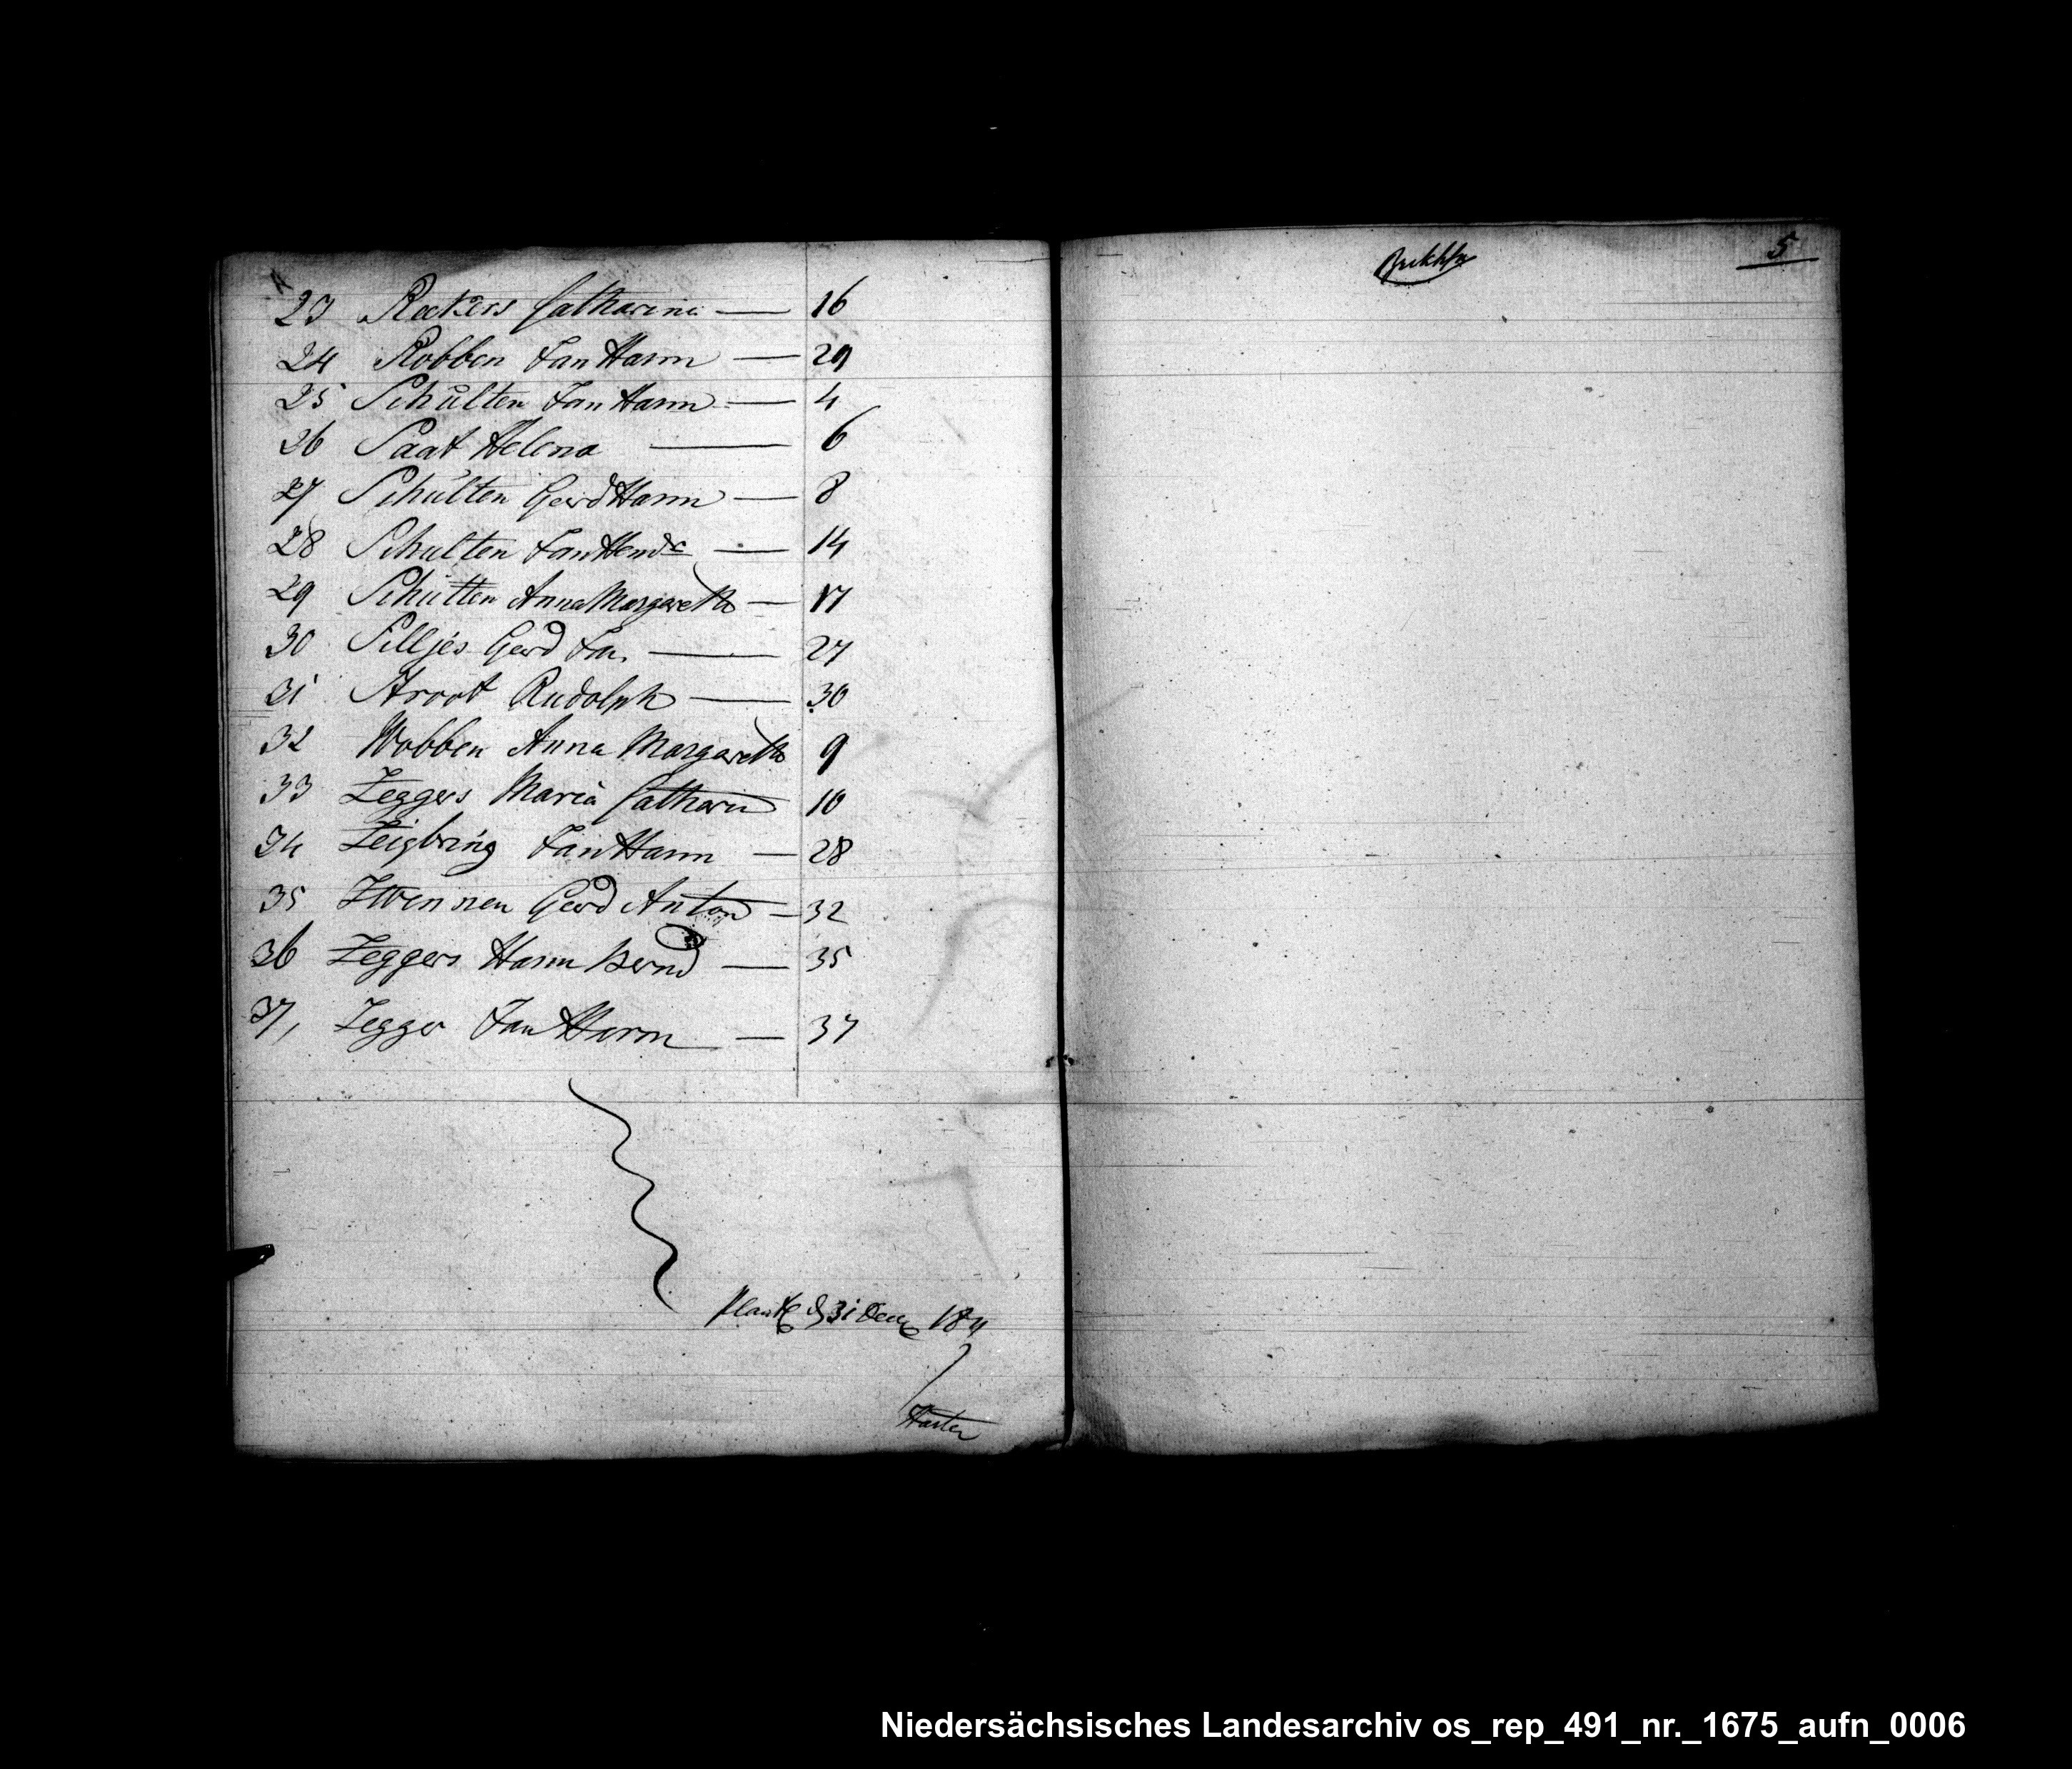 23 Reckers Catharina — 16
24 Robben Jan Harm — 29
25 Schulten Jan Harm — 4
26 Saat Helena — 6
27 Schulten Gerd Harm — 8
28 Schulten Jan Hendr — 14
29 Schütten Anna Margareth — 17
30 Silljes Gerd Jan — 27
31 Stroot Rudolph — 30
32 Wobben Anna Margareth 9
33 Zeggers Maria Catharin 10
34 Zeigbring Jan Harm — 28
35 Zwennen Gerd Anton — 32
36 Zeggers Harm Bernd — 35
37, Zegger Jan Harm — 37
31 Dec 1811
5
Niedersächsisches Landesarchiv os_rep_491_nr._1675_aufn_0006